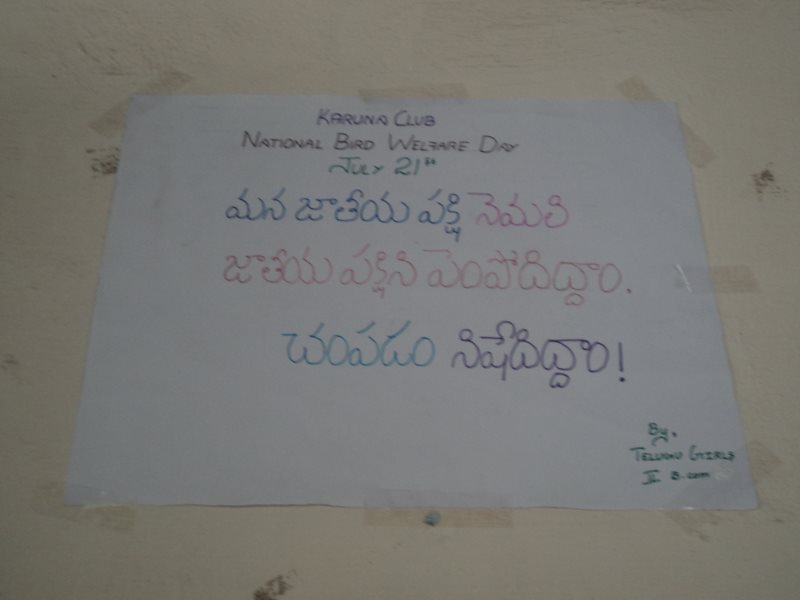 KARUNA CLUB
NATIONAL BIRD WELFARE DAY
JULY 21st
మన జాతీయ పక్షి నెమలి
జాతీయ పక్షిని పెంపోదిద్దాం.
చంపడం నిషేదిద్దాం!
By.
TELUGU GIRLS
II B.com